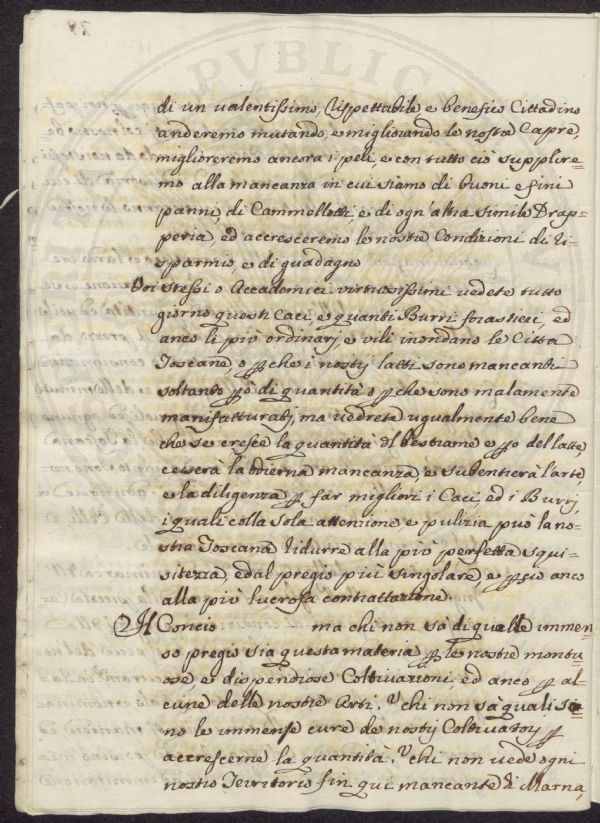 78
PVBLIC
di un valentissimo, rispettabile e benefico Cittadino
anderemo mutando, e migliorando le nostre Capre,
miglioreremo ancora i peli, e con tutto ciò supplire=
mo alla mancanza in cui siamo di buoni e fini
panni, di Cammellotti, e di ogn'altra simile Drap=
peria, ed accresceremo le nostre Condizioni di ri=
sparmio, e di guadagno
Voi stessi o Accademici virtuosissimi vedete tutto
giorno questi Caci, e quanti Burri forastieri, ed
anco li più ordinarj, e vili inondano le Città
Toscane, o pche i nostrj latti sono mancanti
soltanto pò di quantità o pche sono malamente
manifatturatj, ma vedrete ugualmente bene
che se cresce la quantità dl bestiame e po del latte
cesserà la odierna mancanza, e subentierà l'arte,
e la diligenza p far migliori i Caci ed i Burrj,
i quali colla sola attenzione e pulizia può la no=
stra Toscana ridurre alla più perfetta squi=
sitezza, ed al pregio più singolare e pciò anco
alla più lucrosa contrattazione
Il Concio ma chi non sà di quale immen=
so pregio sia questa materia p le nostre montu=
ose, e dispendiose Coltivazioni, ed anco p al=
cune delle nostre Arti, chi non sà quali so=
no le immense cure de nostrj Coltivatorj p
accrescerne la quantità, chi non vede ogni
nostro Territorio fin qui mancante di Marna,